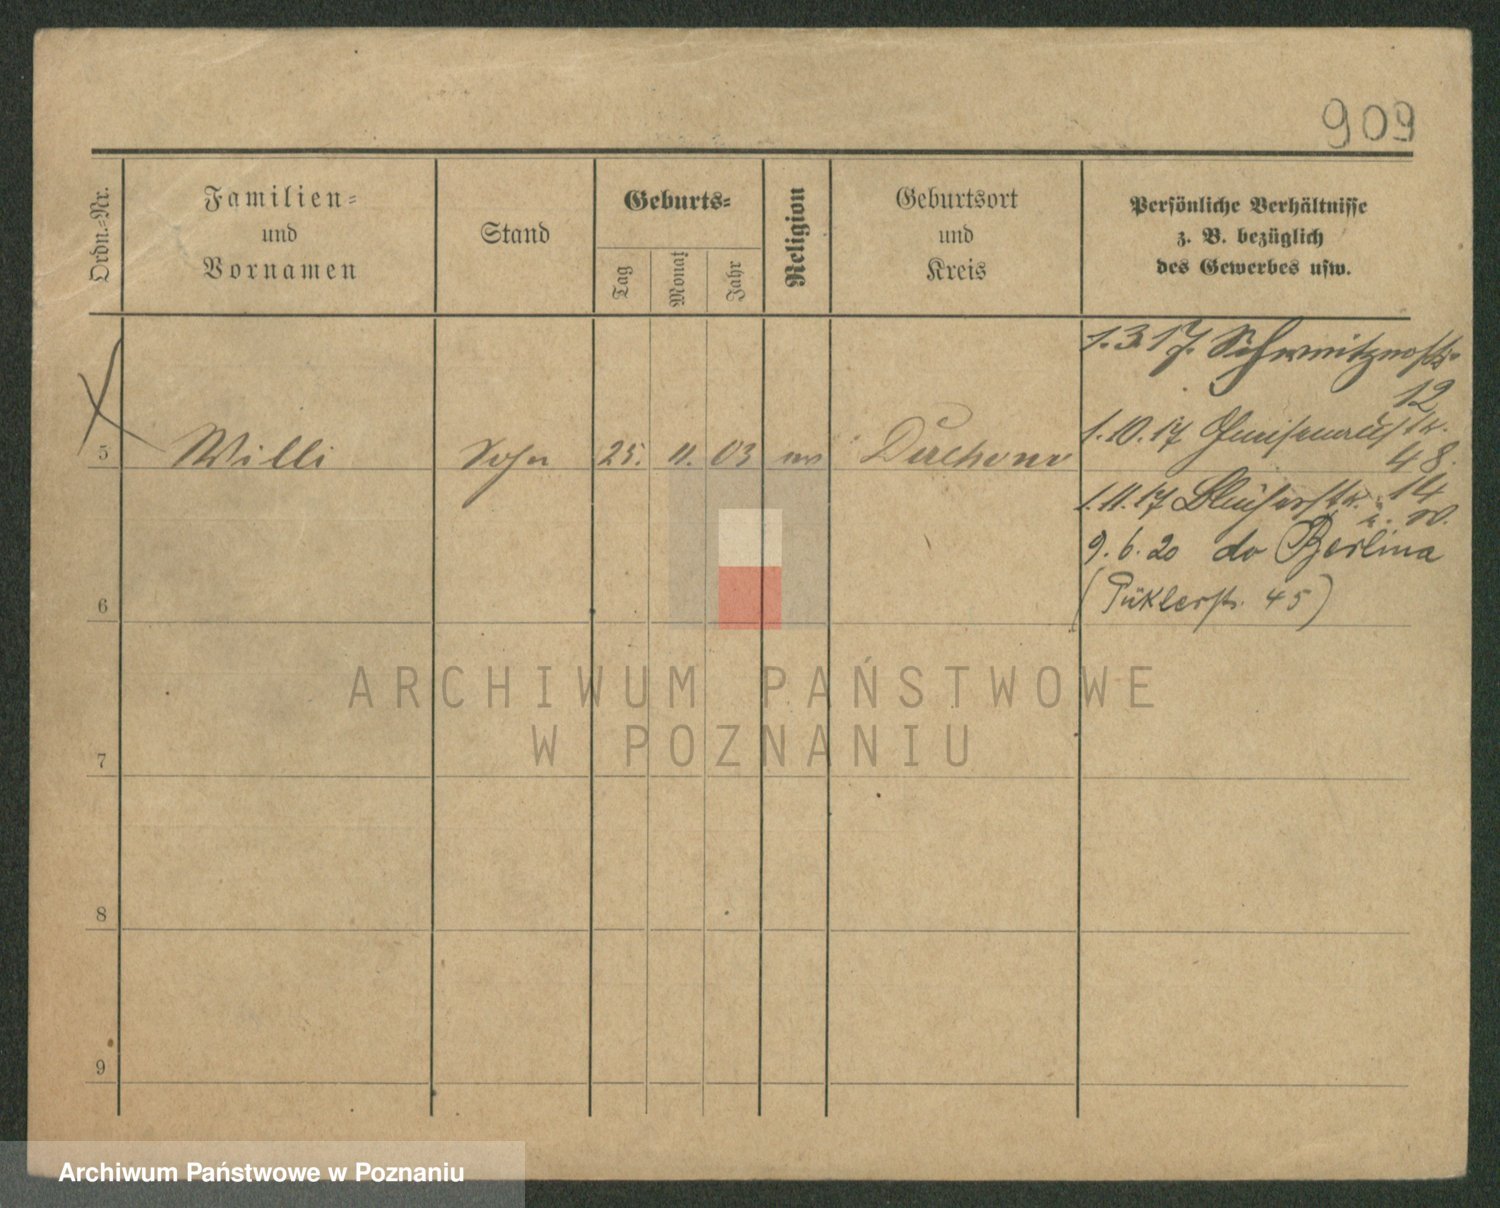 909
Ordn.-Nr.
Familien-
und
Vornamen
Stand
Geburts-
Tag
Monat
Jahr
Religion
Geburtsort
und
Kreis
Persönliche Verhältnisse
z. B. bezüglich
des Gewerbes usw.
1.3.17.
12
5 Willi Sohn 25. 11. 03 ev
1.10.17 Gneisenaustr.
48.
1.11.17 Blücherstr. 14
9.6.20 do Berlina
6
(Püklerstr. 45)
ARCHIWUM PAŃSTWOWE
W POZNANIU
7
8
9
Archiwum Państwowe w Poznaniu